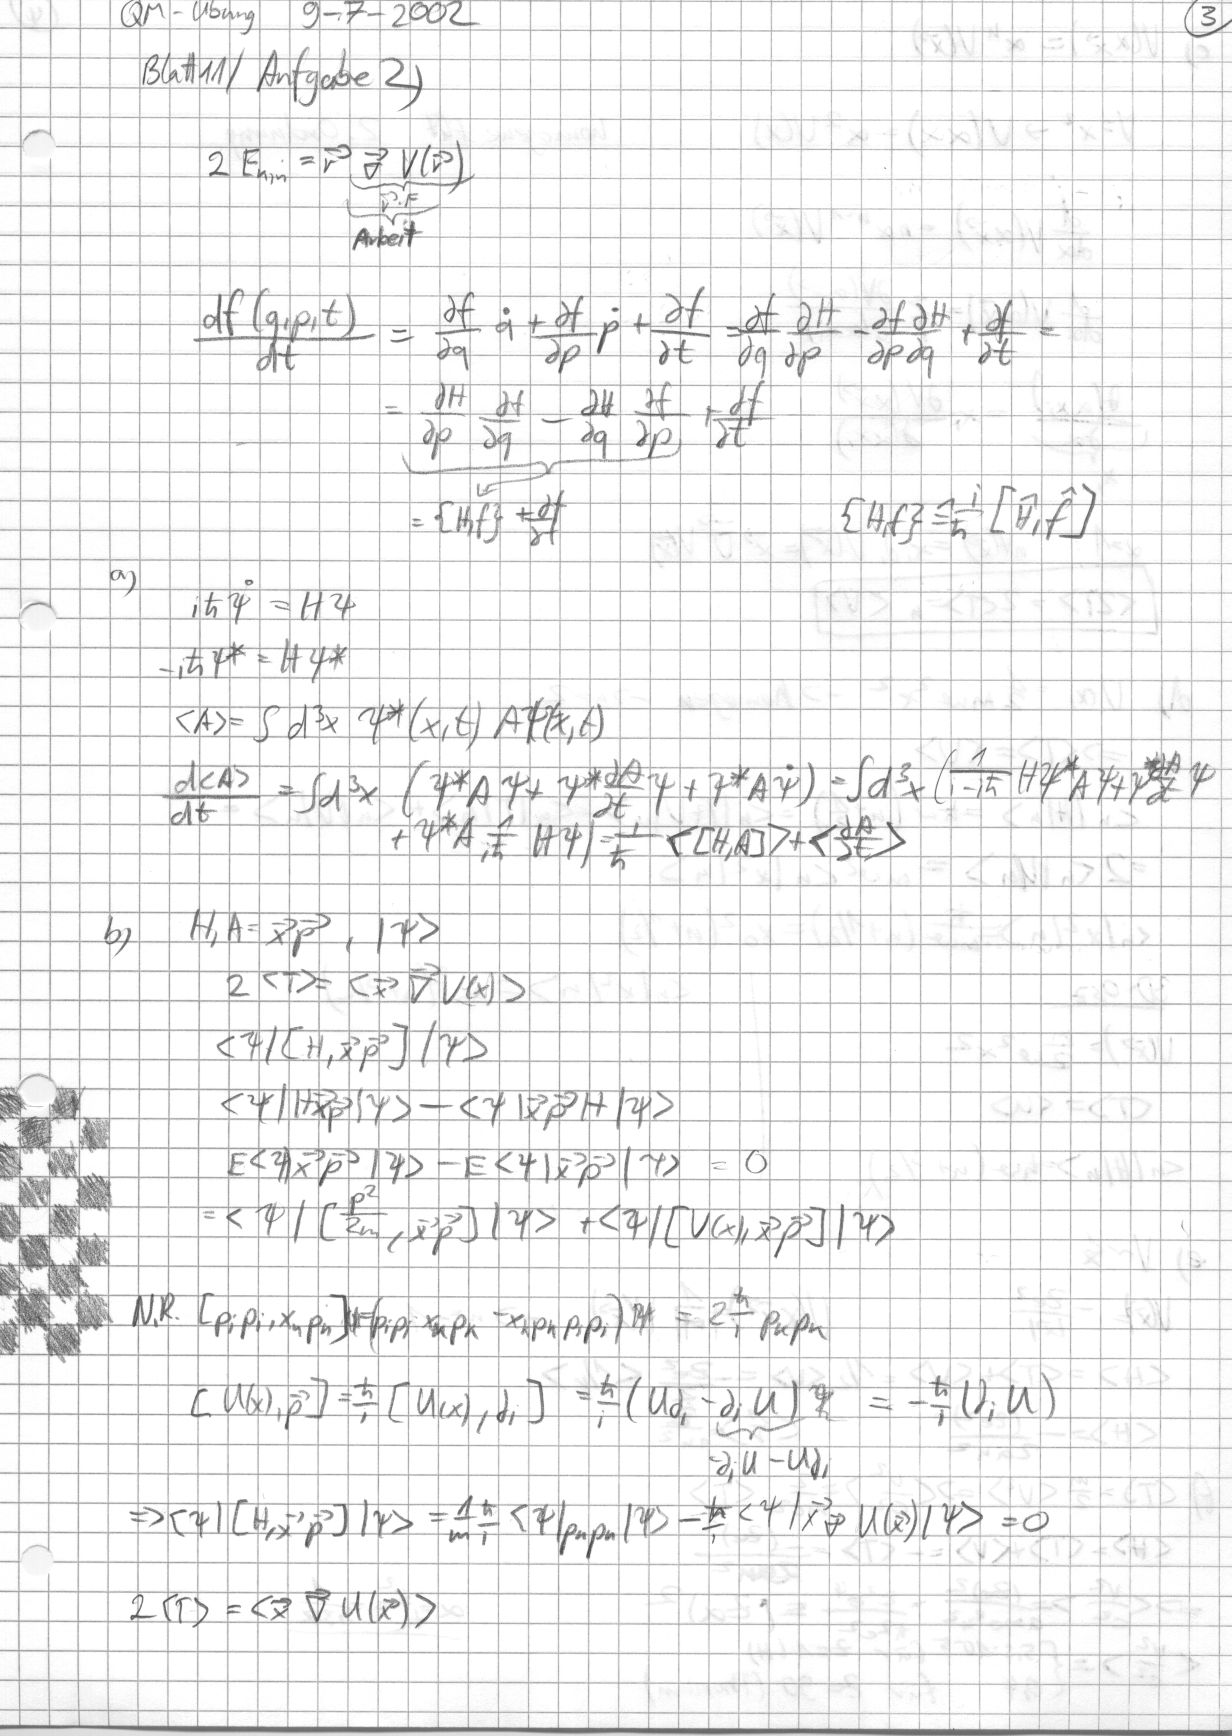 QM-Übung 9-7-2002
3
Blatt 11/ Aufgabe 2)
2 E_kin = r⃗ ∇⃗ V(r⃗)
r⃗·F
Arbeit
df(q,p,t)/dt = ∂f/∂q q̇ + ∂f/∂p ṗ + ∂f/∂t = ∂f/∂q ∂H/∂p - ∂f/∂p ∂H/∂q + ∂f/∂t =
= ∂H/∂p ∂f/∂q - ∂H/∂q ∂f/∂p + ∂f/∂t
= {H,f} + ∂f/∂t
{H,f} = i/ħ [Ĥ,f̂]
a)
iħψ̇ = Hψ
-iħψ* = Hψ*
<A> = ∫ d³x ψ*(x,t) Aψ(x,t)
d<A>/dt = ∫d³x (ψ*Aψ + ψ* ∂A/∂t ψ + ψ*Aψ̇) = ∫d³x (1/-iħ Hψ*Aψ + ψ* ∂A/∂t ψ
+ ψ*A 1/iħ Hψ) = i/ħ <[H,A]> + <∂A/∂t>
b) H, A = x⃗p⃗, |ψ>
2<T> = <x⃗ ∇⃗ V(x)>
<ψ|[H,x⃗p⃗]|ψ>
<ψ|Hx⃗p⃗|ψ> - <ψ|x⃗p⃗H|ψ>
E<ψ|x⃗p⃗|ψ> - E<ψ|x⃗p⃗|ψ> = 0
= <ψ|[p²/2m, x⃗p⃗]|ψ> + <ψ|[V(x),x⃗p⃗]|ψ>
N.R. [p_i p_i, x_k p_k]ψ = (p_i p_i x_k p_k - x_k p_k p_i p_i)ψ = 2 ħ/i p_k p_k
[U(x),p⃗] = ħ/i [U(x),∂_i] = ħ/i (U∂_i - ∂_i U) ψ = -ħ/i (∂_i U)
-∂_i U - U∂_i
=> <ψ|[H,x⃗p⃗]|ψ> = 1/m ħ/i <ψ|p_k p_k|ψ> - ħ/i <ψ|x⃗∇⃗ U(x⃗)|ψ> = 0
2<T> = <x⃗ ∇⃗ U(x⃗)>